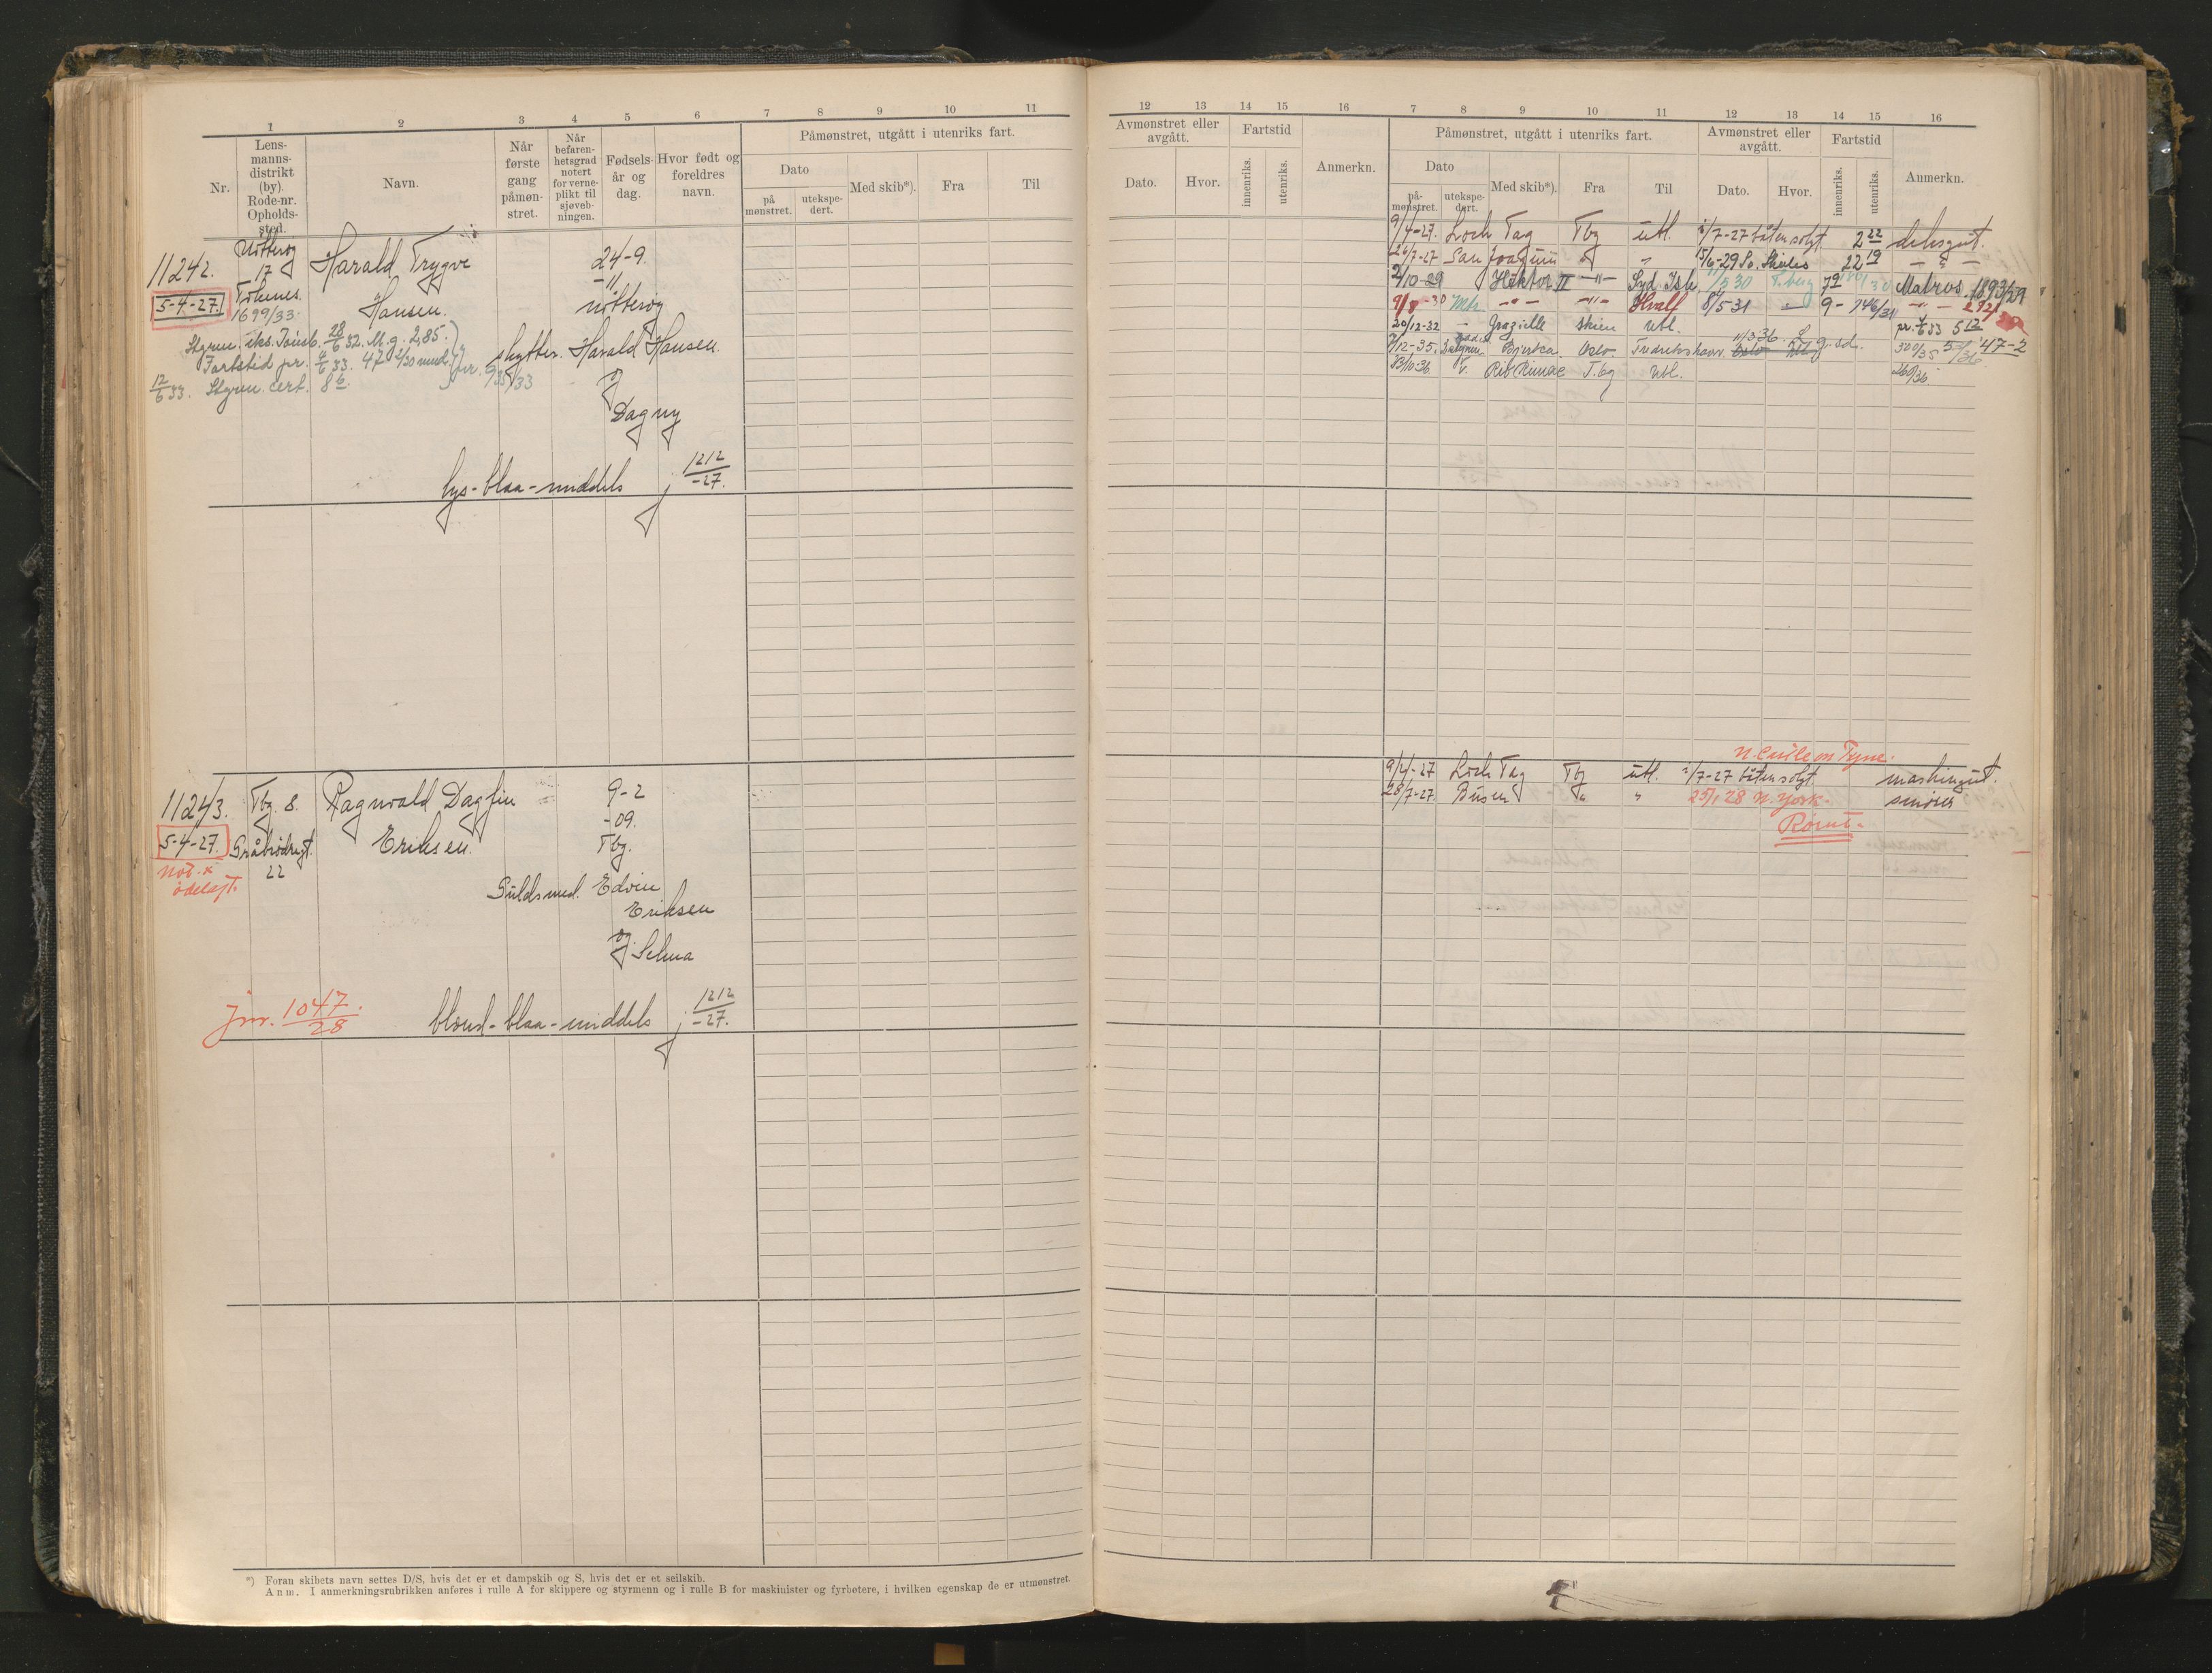 1 2 3 4 5 6 7 8 9 10 11
Nr.
Lens-
manns-
distrikt
(by).
Rode-nr.
Opholds-
sted.
Navn.
Når
første
gang
påmøn-
stret.
Når
befaren-
hetsgrad
notert
for verne-
plikt til
sjøveb-
ningen.
Fødsels-
år og
dag.
Hvor født og
foreldres
navn.
Påmønstret, utgått i utenriks fart.
Dato
på
mønstret.
utekspe-
dert.
Med skib*).
Fra
Til
11242.
5-4-27.
Nøtterøy
17
1699/33
Harald Trygve
Hansen.
24-9.
-11
Nøtterøy
skytter Harald Hansen
og
Dagny
Styrm. eks. Tønsb. 28/6 32. M.g. 2,85.
Fartstid pr. 4/6 33. 47 2/30 mnd.
12/6 33. Styrm. cert.
lys-blaa-middels j 1212/-27.
11243.
5-4-27.
Tbg. 8.
22
Ragnvald Dagfin
Eriksen.
9-2
-09.
Tbg.
Guldsmed. Edvin
Eriksen
og Selma
jnr. 1047/28
blond-blaa-middels j 1212/-27.
*) Foran skibets navn settes D/S, hvis det er et dampskib og S, hvis det er et seilskib.
Anm. I anmerkningsrubrikken anføres i rulle A for skippere og styrmenn og i rulle B for maskinister og fyrbøtere, i hvilken egenskap de er utmønstret.
12 13 14 15 16 7 8 9 10 11 12 13 14 15 16
Avmønstret eller
avgått.
Dato.
Hvor.
Fartstid
innenriks.
utenriks.
Anmerkn.
Påmønstret, utgått i utenriks fart.
Dato
på-
mønstret.
utekspe-
dert.
Med skib*).
Fra
Til
Avmønstret eller
avgått.
Dato.
Hvor.
Fartstid
innenriks.
utenriks.
Anmerkn.
9/4-27. Loch Tay Tbg utl. 2/7-27 båten solgt 2 22
26/7-27 San Joaquin 15/6-29 So. Shields 22 19 - " -
2/10 29 Hektor II -"- Syd. Ish. 11/5 30 79 Matros 1893/29
9/8-30 -"- -"- Hvalf 8/5 31 9- 746/31 -"-
20/12-32 - Grazielle Skien Utl. pr. 4/6 33 5 12
7/12-35. Bjerka Oslo Fredrikshavn 11/3 36 300/35 47-2
13/10 36 T.bg Utl. 260/36
N. Castle on Tyne.
9/4-27 Loch Tay Tbg utl. 2/7-27 båten solgt. maskingut.
28/7-27. Busen " " 25/1 28 N. York. smører
Rømt.